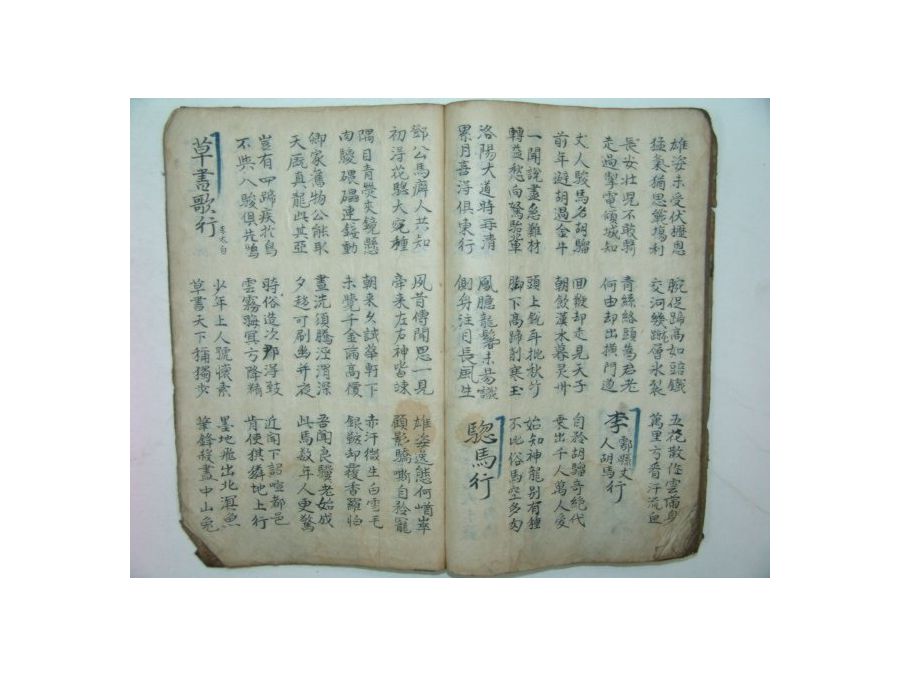 雄姿未受伏櫪恩
猛氣猶思戰場利
腕促蹄高如踣鐵
交河幾蹴層氷裂
五花散作雲滿身
萬里方看汗流血
長安壯児不敢騎
走過掣電傾城知
青絲絡頭爲君老
何由却出橫門道
李鄠縣丈人胡馬行
丈人駿馬名胡騮
前年避胡過金牛
回鞭却走見天子
朝飲漢水暮灵州
自矜胡騮奇絶代
乗出千人萬人愛
一聞說盡急難材
轉益愁向駑駘輩
頭上銳耳批秋竹
脚下高蹄削寒玉
始知神龍別有種
不比俗馬空多肉
洛陽大道時再清
累月喜得俱東行
鳳臆龍鬐未易識
側身注目長風生
驄馬行
鄧公馬癖人共知
初得花驄大宛種
夙昔傳聞思一見
牽来左右神皆竦
雄姿逸態何崷崒
顧影驕嘶自矜寵
隅目青熒夾鏡懸
肉騣碨礧連錢動
朝来久試華軒下
未覺千金滿高價
赤汗微生白雪毛
銀鞍却覆香羅帕
卿家舊物公能取
天厩真龍此其亞
晝洗須騰涇渭深
夕趍可刷幽并夜
吾聞良驥老始成
此馬数年人更驚
豈有四蹄疾於鳥
不與八駿俱先鳴
時俗造次那得致
雲霧晦冥方降精
近聞下詔喧都邑
肯使騏驎地上行
草書歌行 李太白
少年上人號懷素
草書天下稱獨步
墨地飛出北溟魚
筆鋒殺盡中山兔